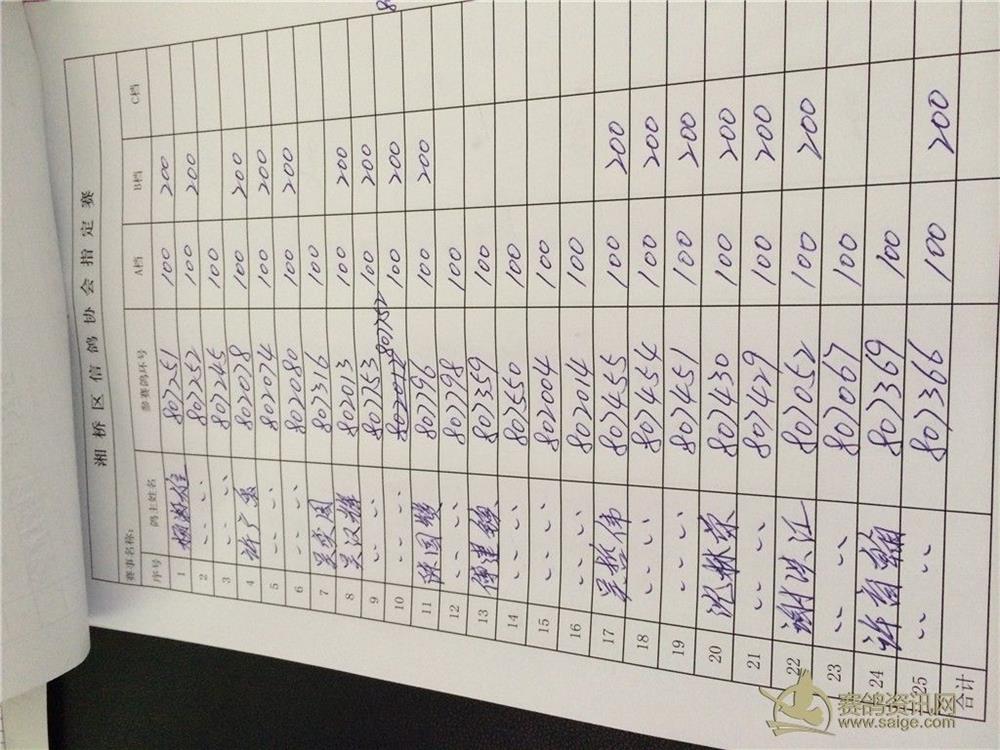 湘桥区信鸽协会指定赛
赛事名称:
序号 鸽主姓名 参赛鸽环号 A档 B档 C档
1 807251 100 200
2 〃 807252 100 200
3 〃 807245 100
4 许广 802078 100 200
5 〃 802074 100 200
6 〃 802080 100 200
7 807316 100
8 吴汉辉 802013 100 200
9 〃 807753 100 200
10 〃 807752 100 200
11 国 807796 100 200
12 〃 807798 100
13 傅建 807359 100
14 〃 807550 100
15 〃 802004 100
16 〃 816204 100
17 吴哲伟 807455 100 200
18 〃 807454 100 200
19 〃 807451 100 200
20 沈林荣 807430 100 200
21 〃 807429 100 200
22 谢洪江 807052 100 200
23 〃 807067 100
24 许育翰 807369 100
25 〃 807366 100 200
合计
赛鸽资讯网
www.saige.com